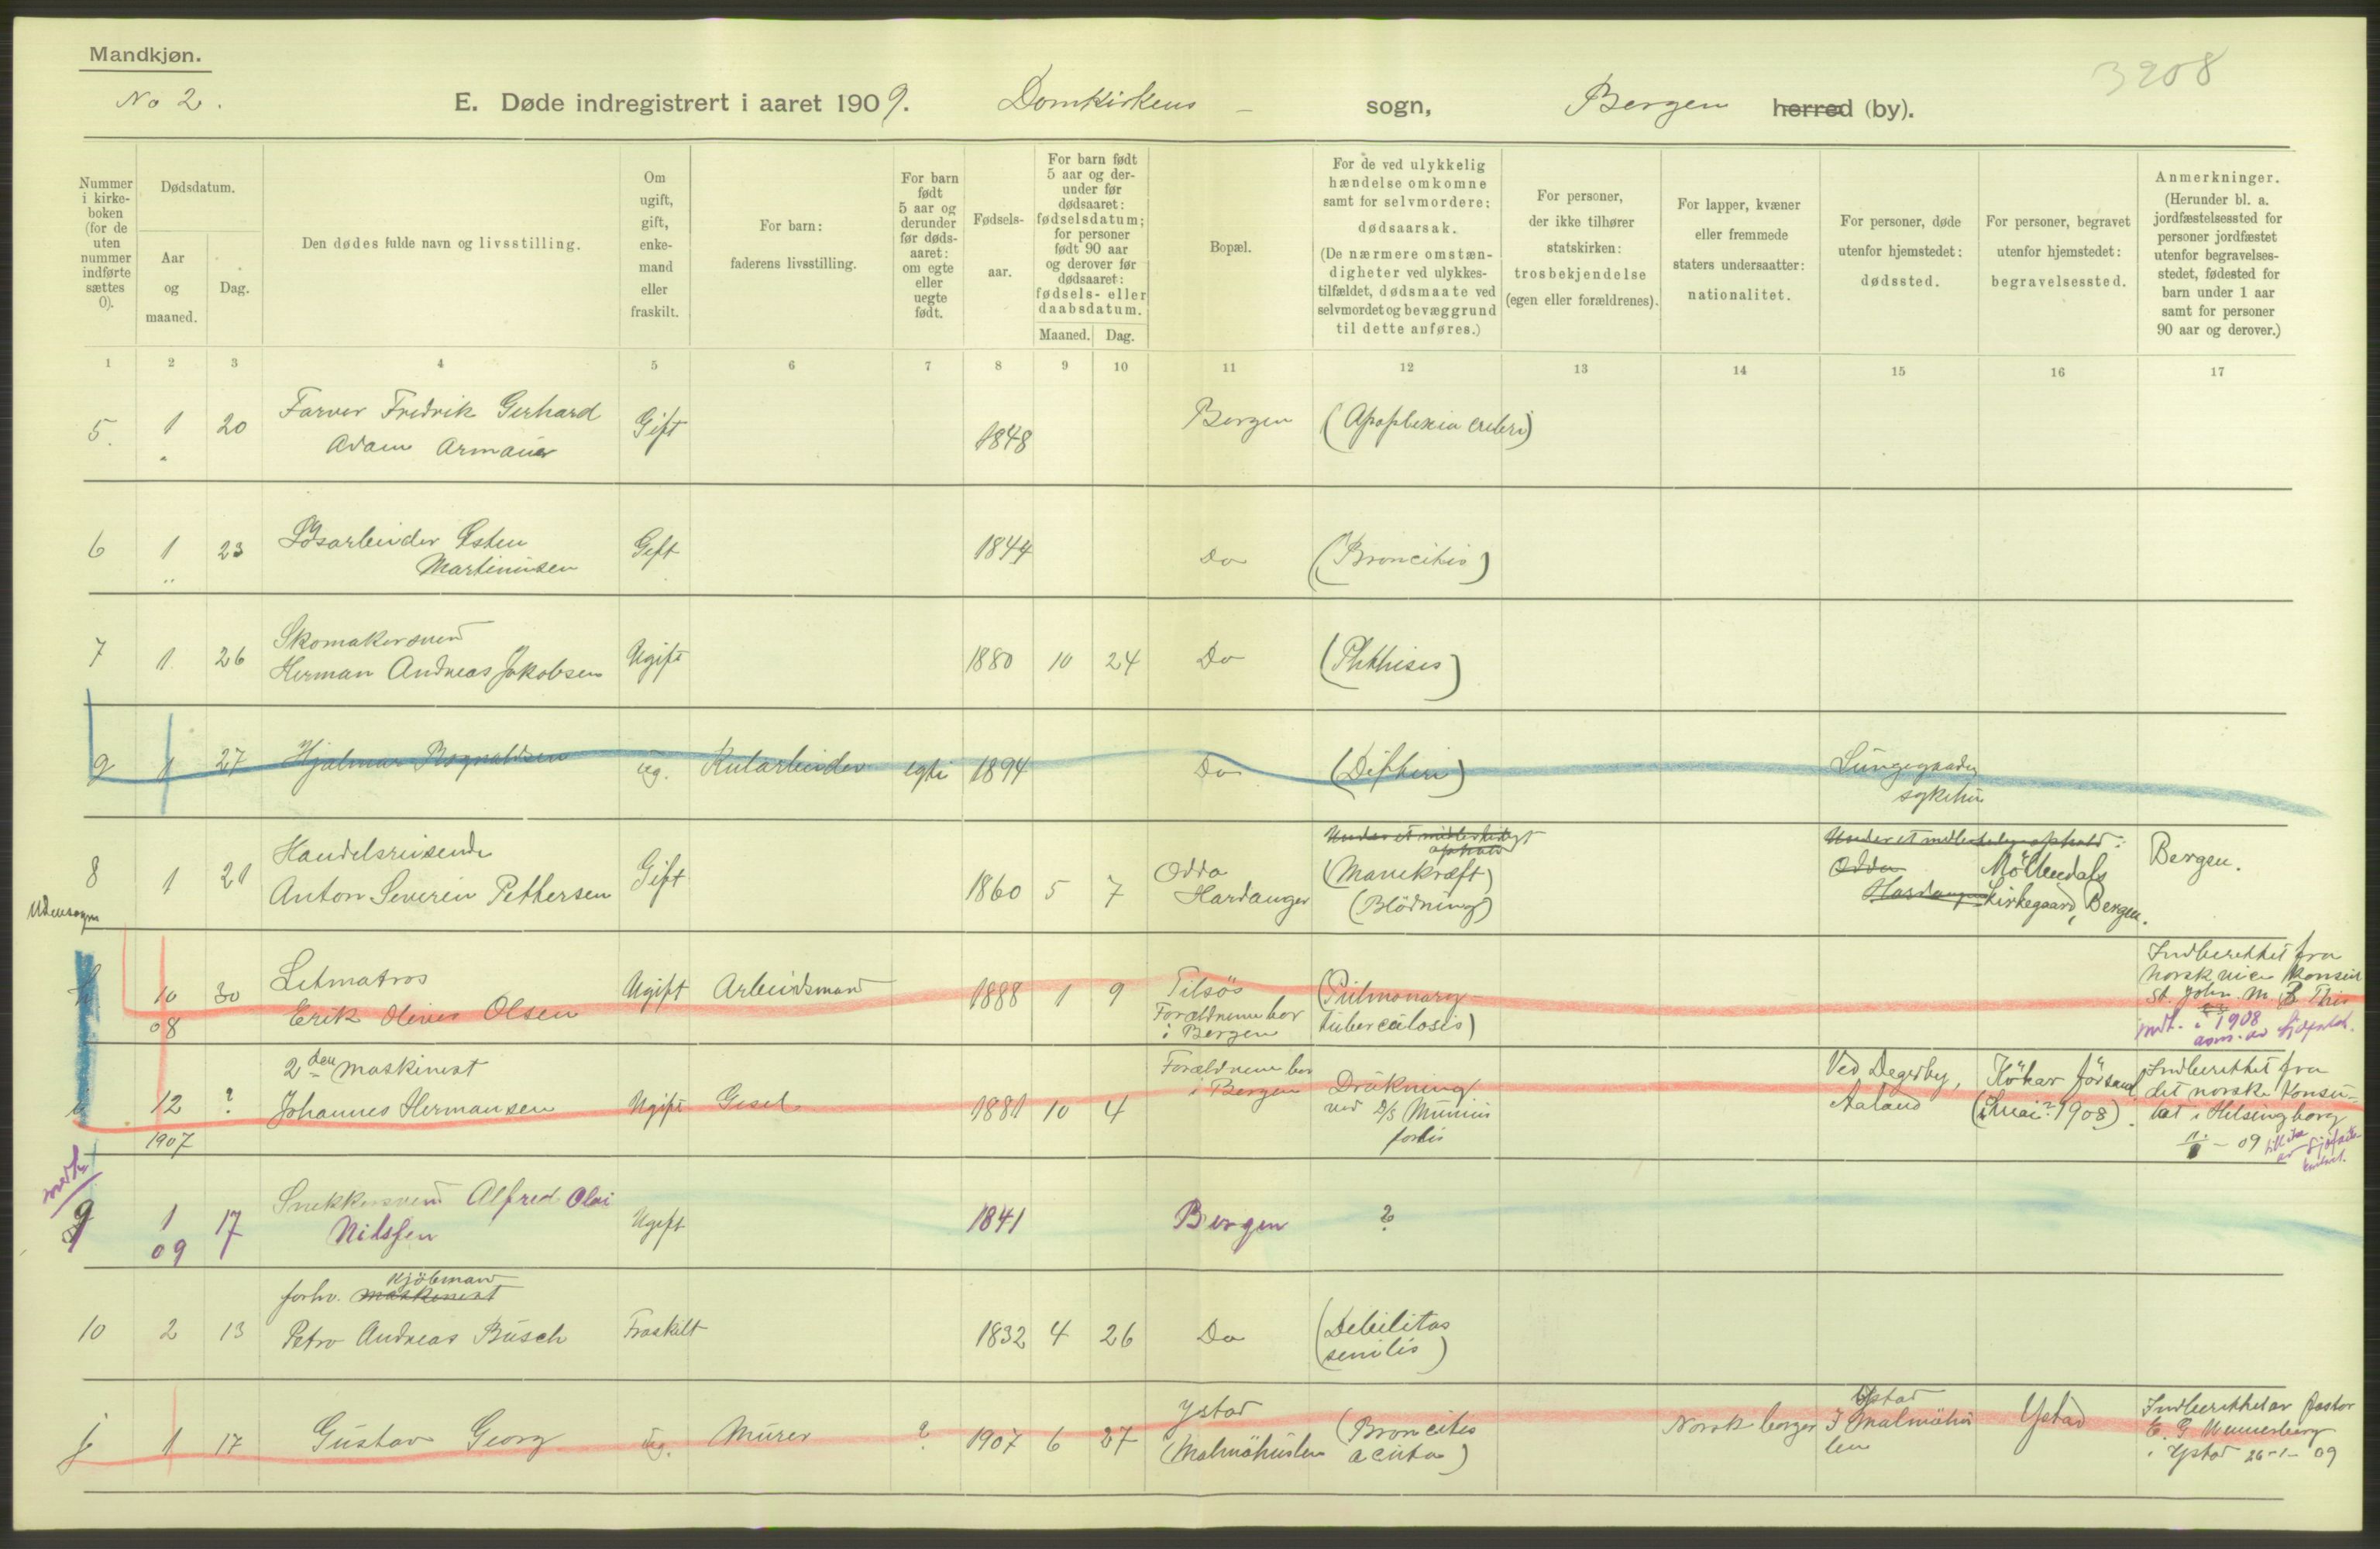 Mandkjøn.
No 2.
E. Døde indregistrert i aaret 1909. Domkirkens sogn, Bergen herred (by).
3908
Nummer i kirke-boken (for de uten nummer indførte sættes 0).
Dødsdatum.
Aar og maaned.
Dag.
Den dødes fulde navn og livsstilling.
Om ugift, gift, enke-mand eller fraskilt.
For barn: faderens livsstilling.
For barn født 5 aar og derunder før døds-aaret: om egte eller uegte født.
Fødsels-aar.
For barn født 5 aar og der-under før dødsaaret: fødselsdatum; for personer født 90 aar og derover før dødsaaret: fødsels- eller daabsdatum.
Maaned. Dag.
Bopæl.
For de ved ulykkelig hændelse omkomne samt for selvmordere: dødsaarsak. (De nærmere omstæn-digheter ved ulykkes-tilfældet, dødsmaate ved selvmordet og bevæggrund til dette anføres.)
For personer, der ikke tilhører statskirken: trosbekjendelse (egen eller forældrenes).
For lapper, kvæner eller fremmede staters undersaatter: nationalitet.
For personer, døde utenfor hjemstedet: dødssted.
For personer, begravet utenfor hjemstedet: begravelsessted.
Anmerkninger. (Herunder bl. a. jordfæstelsessted for personer jordfæstet utenfor begravelses-stedet, fødested for barn under 1 aar samt for personer 90 aar og derover.)
1 2 3 4 5 6 7 8 9 10 11 12 13 14 15 16 17
5. 1 20 Farver Fredrik Gerhard
Adam Armauer Gift 1848 Bergen (Apoplexia cerebri)
6 1 23 Løsarbeider Østen
Martinusen Gift 1844 Do (Broncitis)
7 1 26 Skomakersvend
Herman Andreas Jakobsen Ugift 1880 10 24 Do (Phthisis)
9 1 27 Hjalmar Rognaldsen ug. Kularbeider egte 1894 Do (Difteri) Lungegaardens
sykehus
8 1 21 Handelsreisende
Anton Severin Pettersen Gift 1860 5 7 Odda
Hardanger
Under et midlertidigt
ophold
(Mavekræft)
(Blödning)
Under et midlertidig ophold:
Odda
Hardanger
Möllendals
Kirkegaard, Bergen.
Bergen.
Udensogns
10 30 Letmatros
08 Erik Olines Olsen Ugift Arbeidsmand 1888 1 9
Forældrene bor
i Bergen
(Pulmonary
tuberculosis)
Indberettet fra
norsk vice konsul
St. John.
indt. i 1908
12 ? 2den maskinist
Johannes Hermansen Ugift Gesel 1881 10 4
1907
Forældrene bor
i Bergen
Drukning
ved D/S Munins
forlis
Ved Degerby,
Aaland
Kökar
(i mai? 1908).
Indberettet fra
det norske Konsu-
lat i Helsingborg
09
9 1 17 Snekkersvend Alfred Olai
09 Nilssen Ugift 1841 Bergen ?
10 2 13 forhv. maskinist Kjöbmand
Petro Andreas Busch Fraskilt 1832 4 26 Do (Debilitas
senilis)
1 17 Gustav Georg ug. Murer ? 1907 6 27 Ystad
(Malmöhuslen
(Broncitis
acuta)
Norsk borger
Ystad
I Malmöhus
len
Ystad
Indberettet av pastor
E. G. Wennerberg
i Ystad 26-1-09